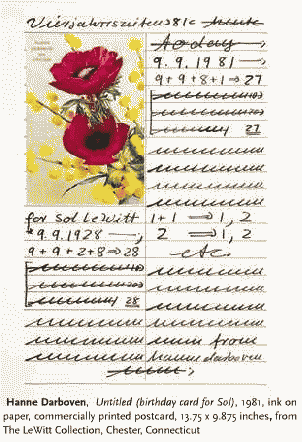 Vierjahreszeiten 81c heute
today —,
9. 9. 1981 —,
9 + 9 + 8 + 1 ⇒ 27
27
for Sol LeWitt
*9. 9. 1928 —,
9 + 9 + 2 + 8 ⇒ 28
28
1 + 1 ⇒ 1, 2
2 ⇒ 1, 2
etc.
from
Hanne darboven
Hanne Darboven, Untitled (birthday card for Sol), 1981, ink on
paper, commercially printed postcard, 13.75 x 9.875 inches, from
The LeWitt Collection, Chester, Connecticut